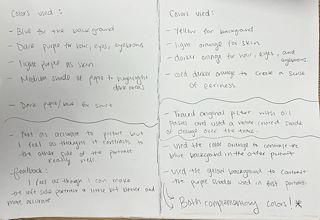 Colors used:
- Blue for the background
- Dark purple for hair, eyes, eyebrows
- light purple as skin
- Medium shade of purple to highlight
dark areas
- Dark purple/blue for shirt
- Not as accurate to picture but
I feel as though it contrasts to
the other side of the portrait
really well
feedback:
I feel as though I can make
the left side portrait a little bit better and
more accurate
Colors used:
- Yellow for background
- light orange for skin
- darker orange for hair, eyes, and eyebrows
- add darker orange to create a sense
of eeriness
- Traced original picture with oil
pastel and used a shade
of orange over the trace.
- used the color orange to contrast the
blue background in the other portrait
- used the yellow background to contrast
the purple shades used in first portrait
Both complementary colors! *